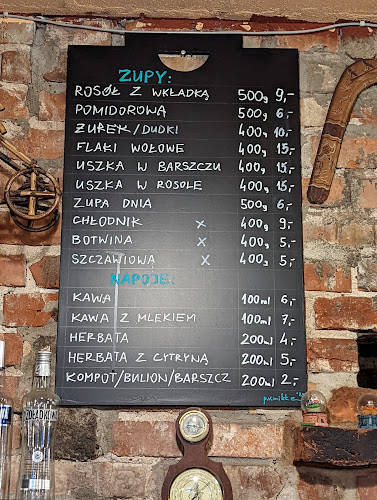 ZUPY:
ROSÓŁ Z WKŁADKĄ 500g 9,-
POMIDOROWA 500g 6,-
ŻUREK/DUDKI 400g 10,-
FLAKI WOŁOWE 400g 15,-
USZKA W BARSZCZU 400g 15,-
USZKA W ROSOLE 400g 15,-
ZUPA DNIA 500g 6,-
CHŁODNIK x 400g 9,-
BOTWINA x 400g 5,-
SZCZAWIOWA x 400g 5,-
NAPOJE:
KAWA 100ml 6,-
KAWA Z MLEKIEM 100ml 7,-
HERBATA 200ml 4,-
HERBATA Z CYTRYNĄ 200ml 5,-
KOMPOT/BULION/BARSZCZ 200ml 2,-